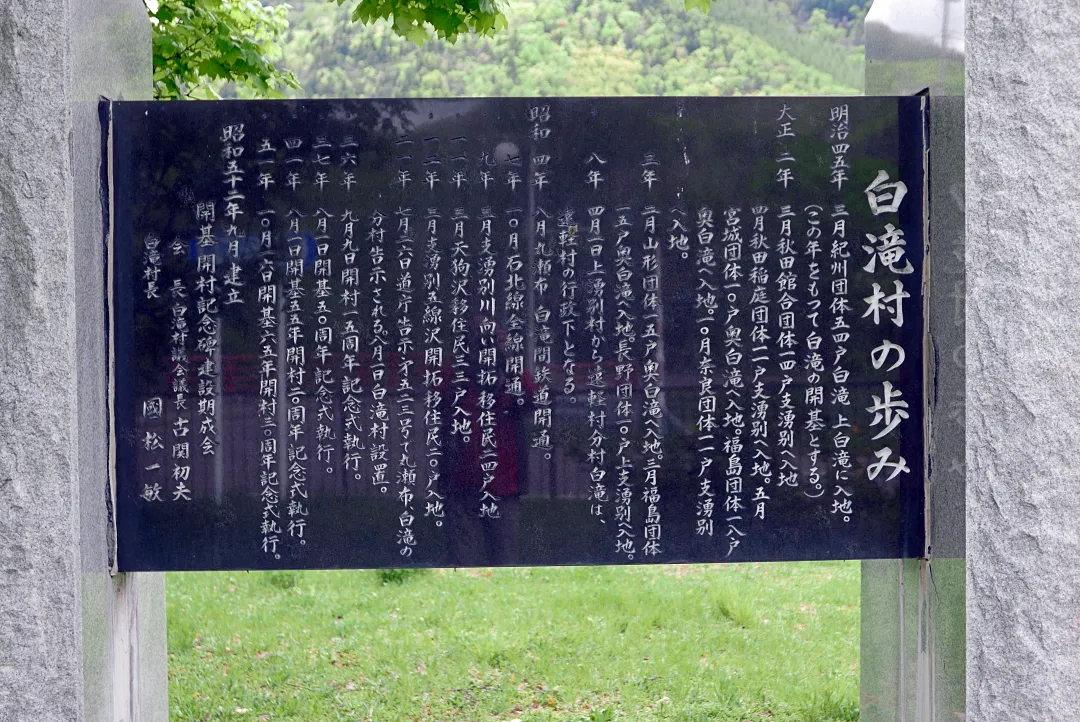 白滝村の歩み
明治四五年 三月紀州団体五四戸白滝、上白滝に入地。
(この年をもつて白滝の開基とする。)
大正 二年 三月秋田館合団体一四戸支湧別へ入地
四月秋田稲庭団体一一戸支湧別へ入地。五月
宮城団体一〇戸奥白滝へ入地。福島団体一八戸
奥白滝へ入地。一〇月奈良団体一一戸支湧別
へ入地。
三年 二月山形団体一五戸奥白滝へ入地。三月福島団体
一五戸奥白滝へ入地。長野団体一〇戸上支湧別へ入地。
八年 四月一日上湧別村から遠軽村分村白滝は、
遠軽村の行政下となる。
昭和 四年 八月丸瀬布 白滝間鉄道開通。
七年 一〇月石北線全線開通。
九年 三月支湧別川向い開拓移住民二四戸入地
一一年 三月天狗沢移住民三三戸入地。
一二年 三月支湧別五線沢開拓移住民二〇戸入地。
二一年 七月二六日道庁告示才五二三号で丸瀬布、白滝の
分村告示される。八月一日白滝村設置。
三六年 九月九日開村一五周年記念式執行。
三七年 八月一日開基五〇周年記念式執行。
四一年 八月一日開基五五年開村二〇周年記念式執行。
五一年 一〇月二六日開基六五年開村三〇周年記念式執行。
昭和五十二年九月建立
開基開村記念碑建設期成会
会長 白滝村議会議長 古関初夫
白滝村長 國松一敏